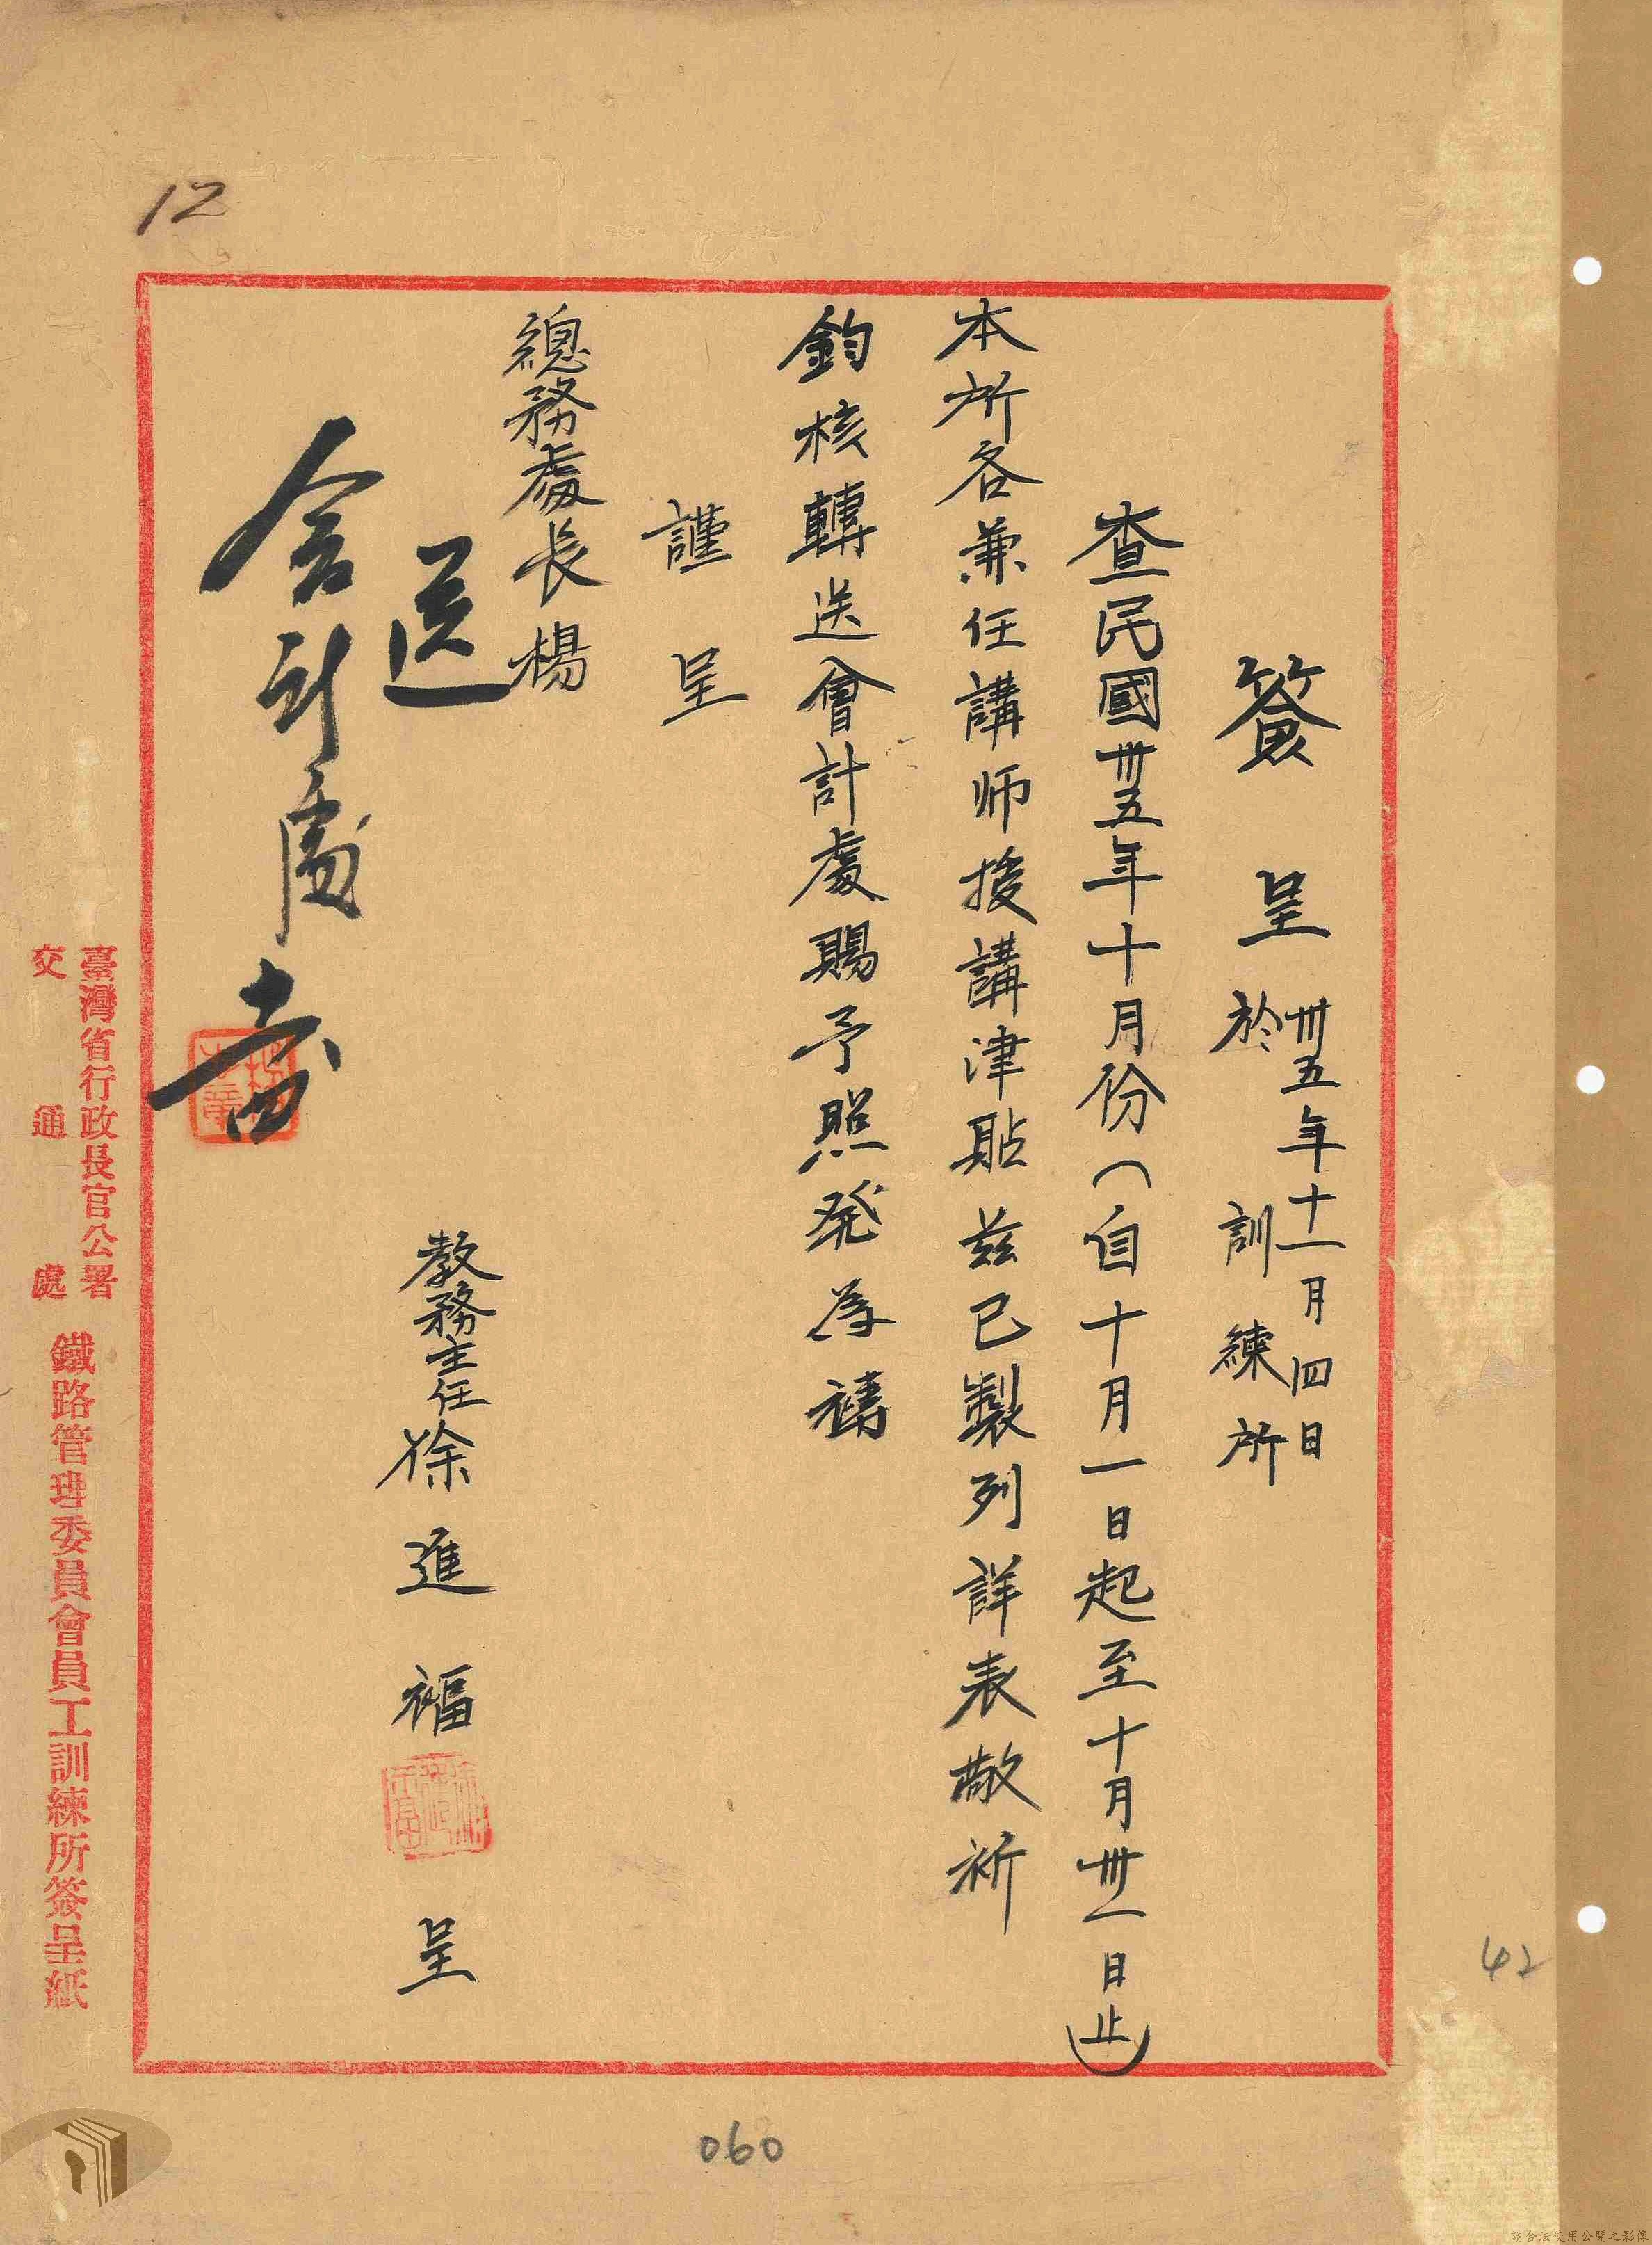 簽呈 卅五年十一月四日
於訓練所
查民國卅五年十月份（自十月一日起至十月卅一日止）
本所各兼任講师授講津貼茲已製列詳表敬祈
鈞核轉送會計處賜予照発為禱
謹呈
總務處長楊
教務主任徐進福 呈
送
會計處
臺灣省行政長官公署
交通處
鐵路管理委員會員工訓練所簽呈紙
12
42
060
請合法使用公開之影像